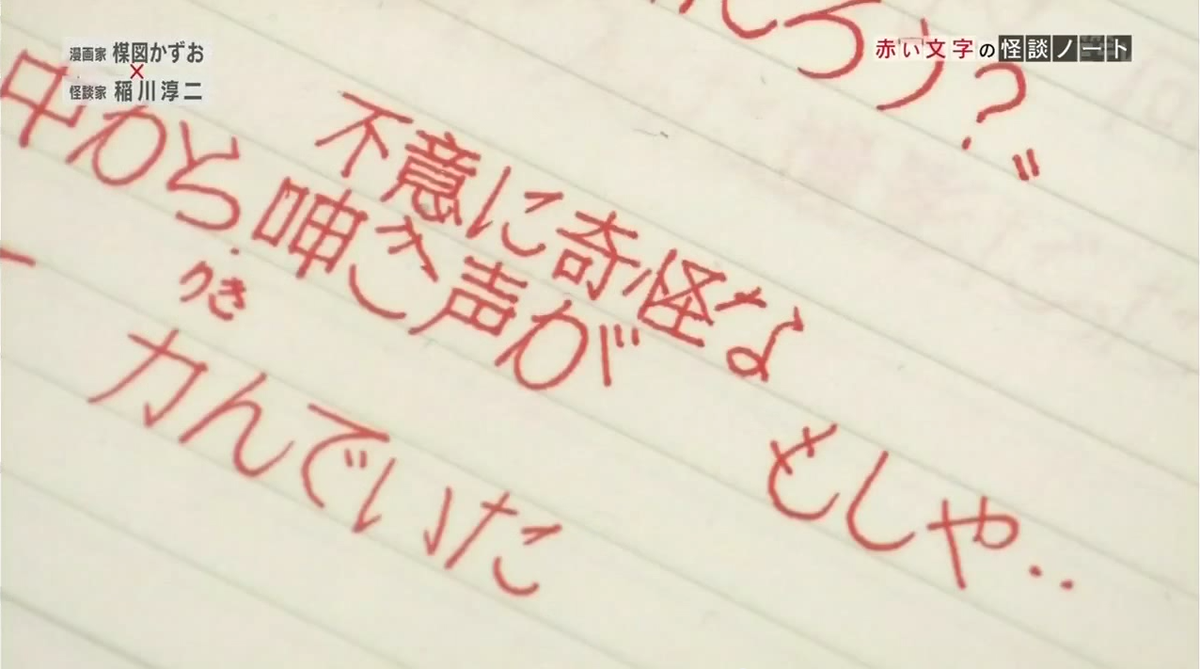 漫画家 楳図かずお
×
怪談家 稲川淳二
赤い文字の怪談ノート
ろう?〟
不意に奇怪な
中から呻き声が
りき
力んでいた
もしや‥